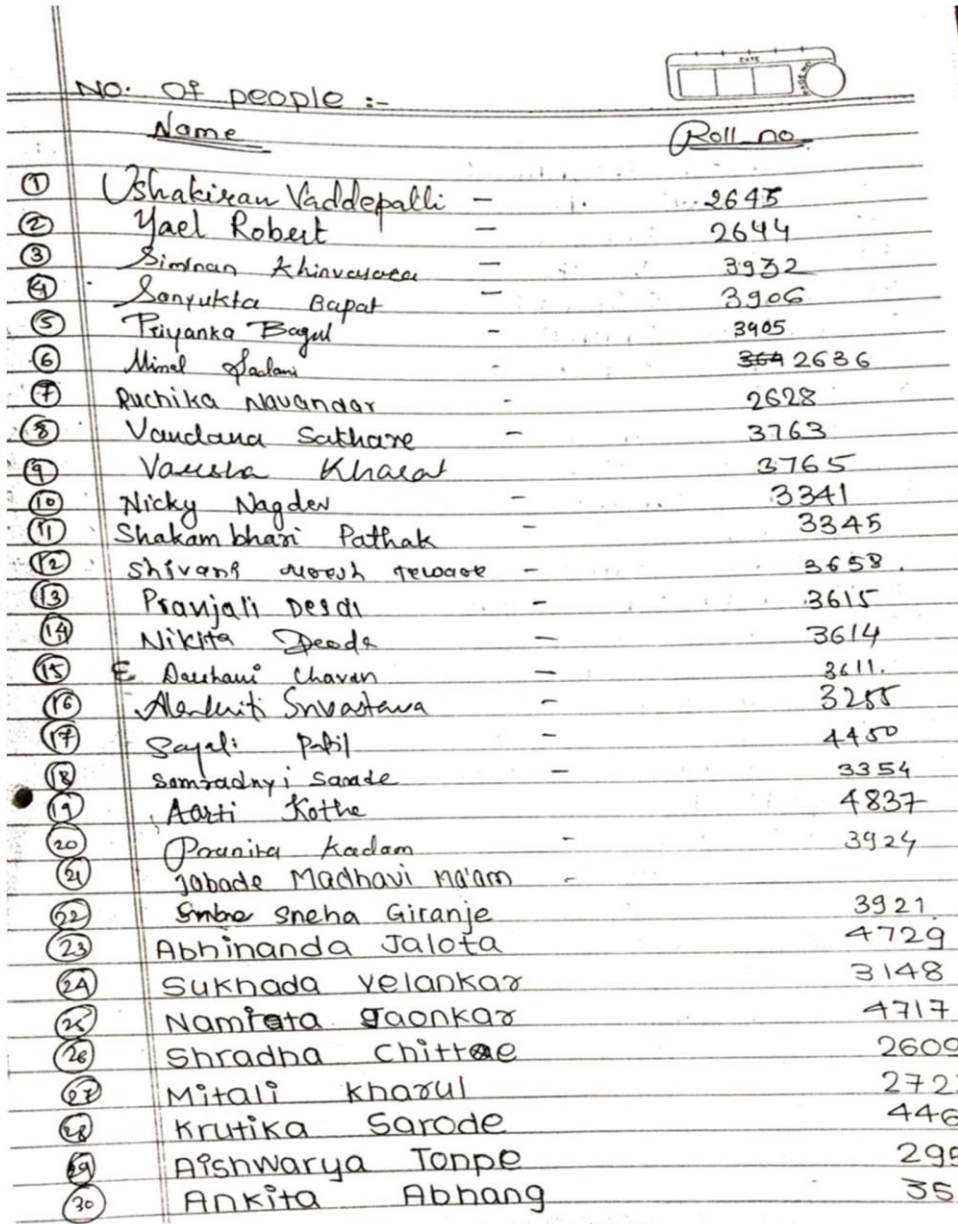 DATE
PAGE NO.
No. Of people :-
Name Roll no.
① Ushakiran Vaddepalli - 2645
② Yael Robert - 2644
③ Simran Khinvasara - 3932
④ Sanyukta Bapat - 3906
⑤ Priyanka Bagul - 3905
⑥ Minal - 364 2636
⑦ Ruchika Navandar - 2628
⑧ Vandana Sathare - 3763
⑨ Varsha Kharat 3765
⑩ Nicky Nagdev - 3341
⑪ Shakambhari Pathak - 3345
⑫ Shivani - 3658.
⑬ Pranjali Desai - 3615
⑭ Nikita - 3614
⑮ Darshani Chavan - 3611.
⑯ Srivastava - 3255
⑰ Sayali Patil - 4450
⑱ Samradnyi Sarade - 3354
⑲ Aarti Kothe 4837
⑳ Pranita Kadam - 3924
㉑ Jobade Madhavi Ma'am -
㉒ Sneha Giranje 3921
㉓ Abhinanda Jalota 4729
㉔ Sukhada Velankar 3148
㉕ Namrata Gaonkar 4717
㉖ Shradha 2600
㉗ Mitali Kharul 272
㉘ Krutika Sarode 446
㉙ Aishwarya Tonpe 29
㉚ Ankita Abhang 35